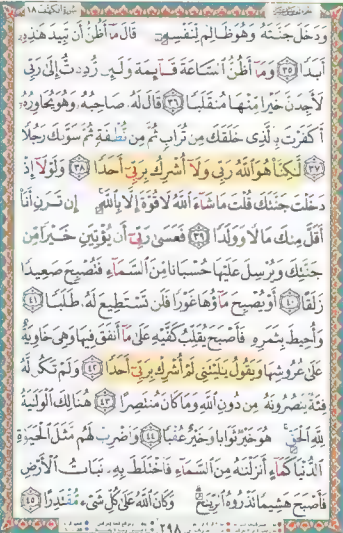 سُورَةُ الكَهْف ١٨
وَدَخَلَ جَنَّتَهُ وَهُوَ ظَالِمٌ لِّنَفْسِهِ قَالَ مَا أَظُنُّ أَن تَبِيدَ هَٰذِهِ
أَبَدًا ٣٥ وَمَا أَظُنُّ السَّاعَةَ قَائِمَةً وَلَئِن رُّدِدتُّ إِلَىٰ رَبِّي
لَأَجِدَنَّ خَيْرًا مِّنْهَا مُنقَلَبًا ٣٦ قَالَ لَهُ صَاحِبُهُ وَهُوَ يُحَاوِرُهُ
أَكَفَرْتَ بِالَّذِي خَلَقَكَ مِن تُرَابٍ ثُمَّ مِن نُّطْفَةٍ ثُمَّ سَوَّىٰكَ رَجُلًا
٣٧ لَّٰكِنَّا هُوَ اللَّهُ رَبِّي وَلَا أُشْرِكُ بِرَبِّي أَحَدًا ٣٨ وَلَوْلَا إِذْ
دَخَلْتَ جَنَّتَكَ قُلْتَ مَا شَاءَ اللَّهُ لَا قُوَّةَ إِلَّا بِاللَّهِ إِن تَرَنِ أَنَا
أَقَلَّ مِنكَ مَالًا وَوَلَدًا ٣٩ فَعَسَىٰ رَبِّي أَن يُؤْتِيَنِ خَيْرًا مِّن
جَنَّتِكَ وَيُرْسِلَ عَلَيْهَا حُسْبَانًا مِّنَ السَّمَاءِ فَتُصْبِحَ صَعِيدًا
زَلَقًا ٤٠ أَوْ يُصْبِحَ مَاؤُهَا غَوْرًا فَلَن تَسْتَطِيعَ لَهُ طَلَبًا ٤١
وَأُحِيطَ بِثَمَرِهِ فَأَصْبَحَ يُقَلِّبُ كَفَّيْهِ عَلَىٰ مَا أَنفَقَ فِيهَا وَهِيَ خَاوِيَةٌ
عَلَىٰ عُرُوشِهَا وَيَقُولُ يَٰلَيْتَنِي لَمْ أُشْرِكْ بِرَبِّي أَحَدًا ٤٢ وَلَمْ تَكُن لَّهُ
فِئَةٌ يَنصُرُونَهُ مِن دُونِ اللَّهِ وَمَا كَانَ مُنتَصِرًا ٤٣ هُنَالِكَ الْوَلَٰيَةُ
لِلَّهِ الْحَقِّ هُوَ خَيْرٌ ثَوَابًا وَخَيْرٌ عُقْبًا ٤٤ وَاضْرِبْ لَهُم مَّثَلَ الْحَيَوٰةِ
الدُّنْيَا كَمَاءٍ أَنزَلْنَٰهُ مِنَ السَّمَاءِ فَاخْتَلَطَ بِهِ نَبَاتُ الْأَرْضِ
فَأَصْبَحَ هَشِيمًا تَذْرُوهُ الرِّيَٰحُ وَكَانَ اللَّهُ عَلَىٰ كُلِّ شَيْءٍ مُّقْتَدِرًا ٤٥
٢٩٨